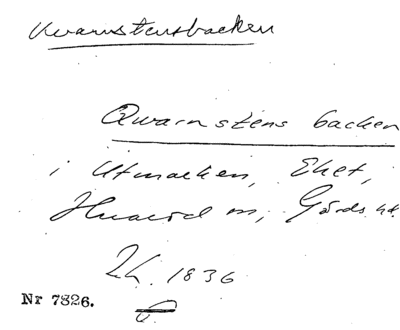 Kvarnstensbacken
Qwarnstens backen
i Utmarken, Eket,
m, Gärds hd.
Lh. 1836
Nr 7826.